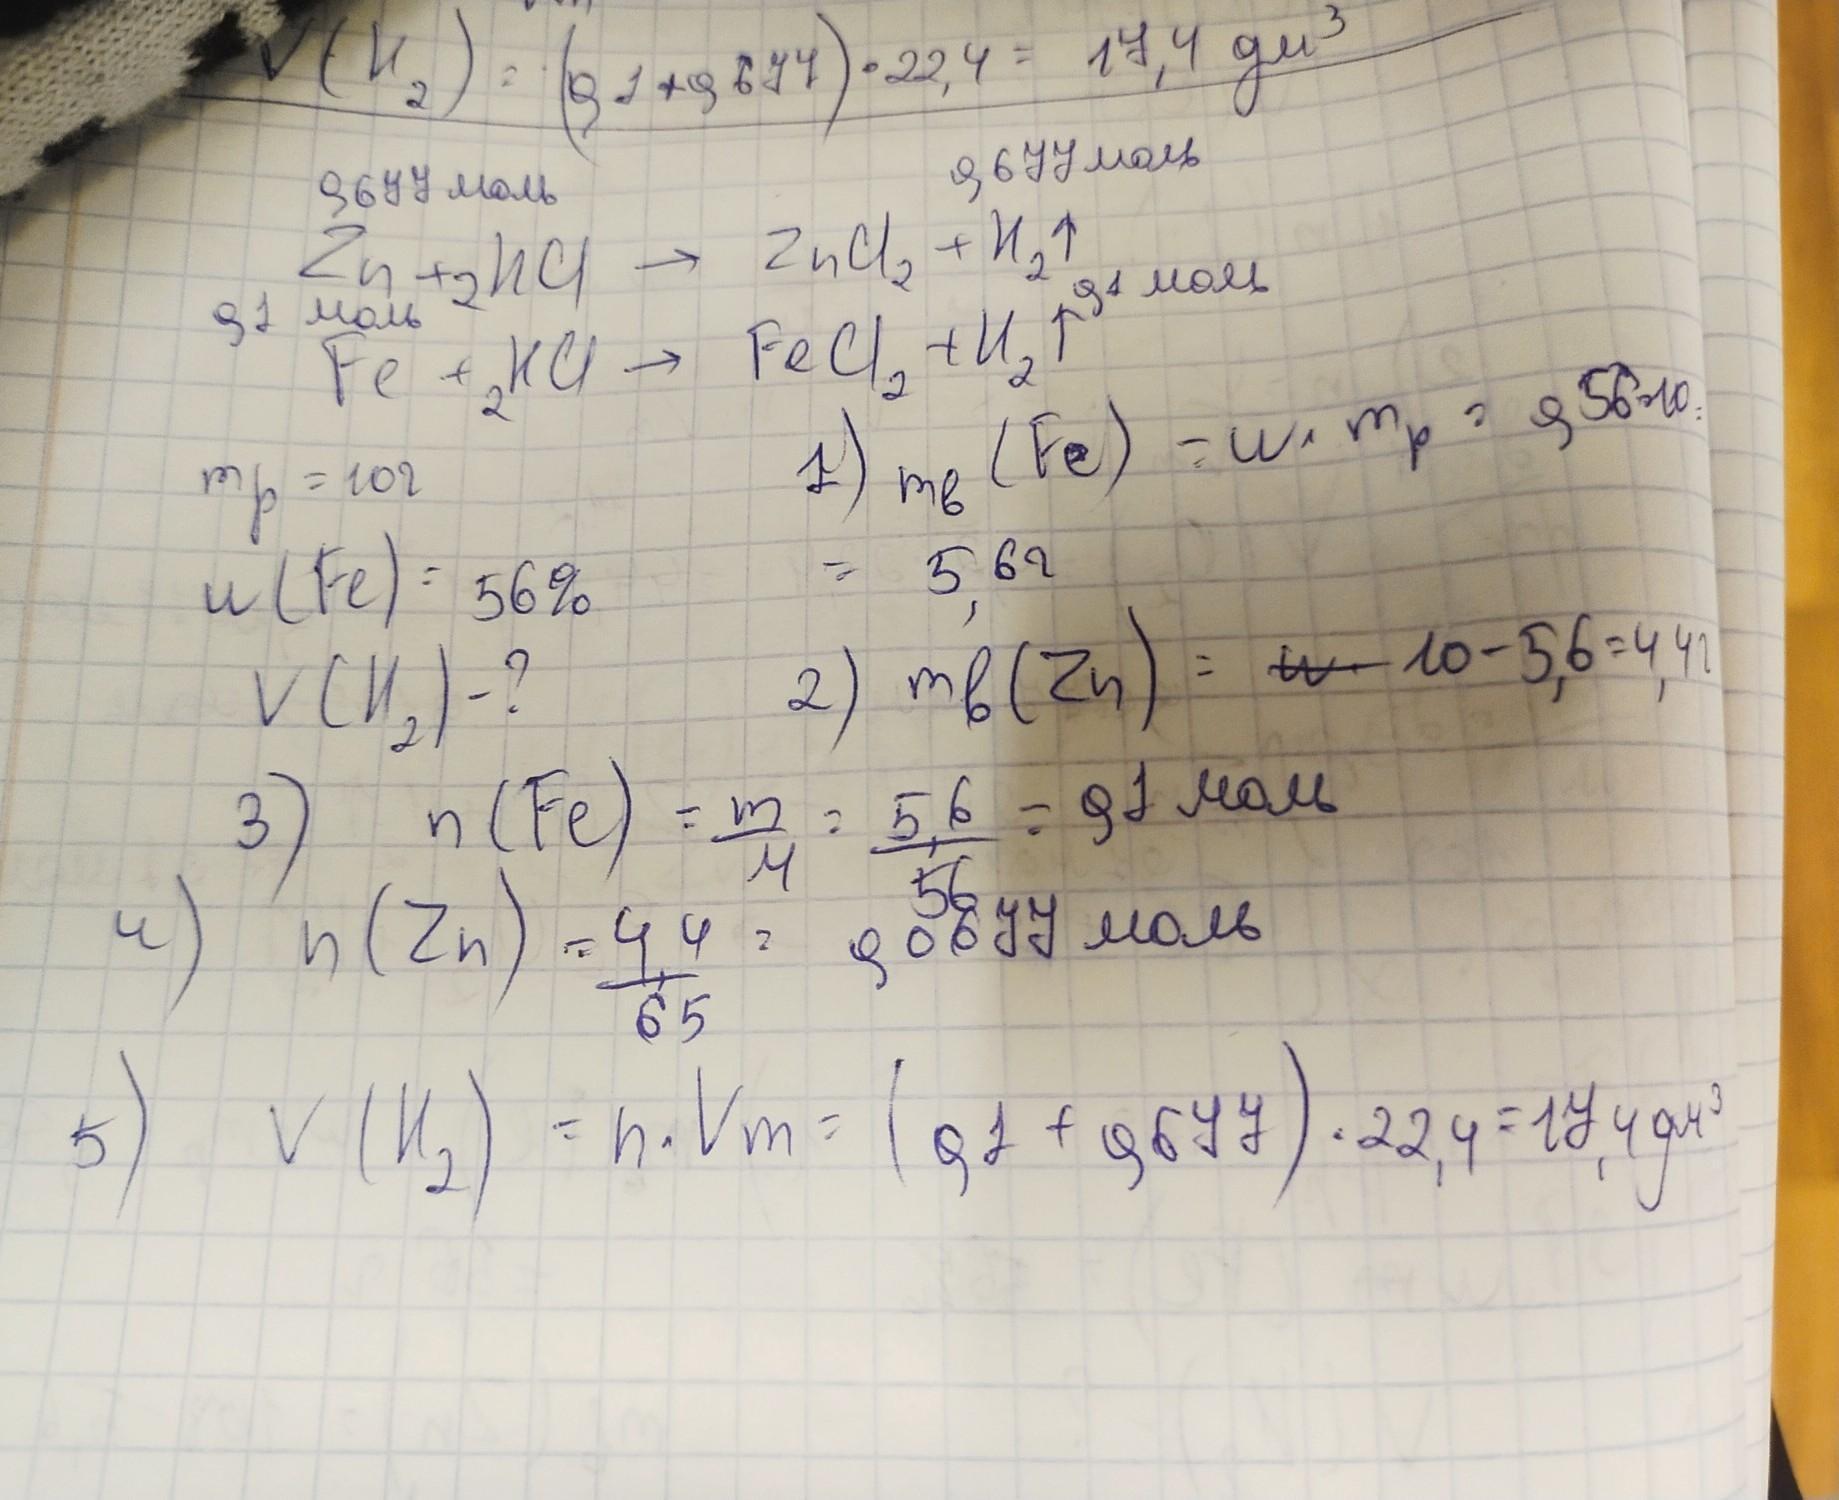 V(H₂) = (0,1+0,677)·22,4 = 17,4 дм³
0,677 моль 0,677 моль
Zn + 2HCl → ZnCl₂ + H₂↑
0,1 моль 0,1 моль
Fe + 2HCl → FeCl₂ + H₂↑
mр = 10г 1) mв (Fe) = w · mр = 0,56·10 =
w(Fe) = 56% = 5,6г
V(H₂) - ? 2) mв(Zn) = 10 - 5,6 = 4,4г
3) n(Fe) = m/M = 5,6/56 = 0,1 моль
4) n(Zn) = 4,4/65 = 0,0677 моль
5) V(H₂) = n·Vm = (0,1 + 0,677)·22,4 = 17,4 дм³